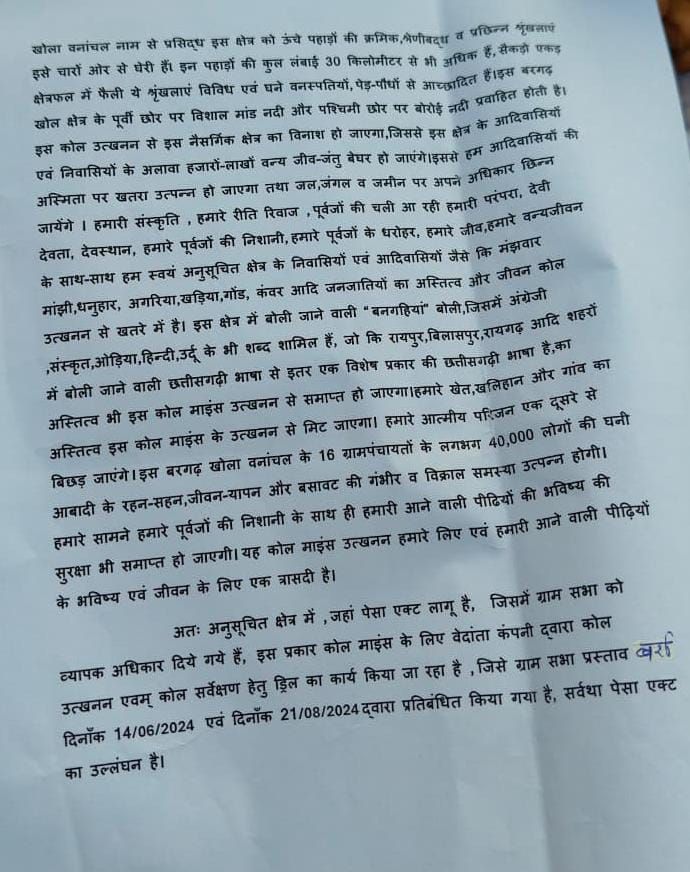 खोला वनांचल नाम से प्रसिद्ध इस क्षेत्र को ऊंचे पहाड़ों की क्रमिक,श्रेणीबद्ध व प्रछिन्न श्रृंखलाएं
इसे चारों ओर से घेरी हैं। इन पहाड़ों की कुल लंबाई 30 किलोमीटर से भी अधिक हैं,सैकड़ो एकड़
क्षेत्रफल में फैली ये श्रृंखलाएं विविध एवं घने वनस्पतियों,पेड़-पौधों से आच्छादित हैं।इस बरगढ़
खोल क्षेत्र के पूर्वी छोर पर विशाल मांड नदी और पश्चिमी छोर पर बोरोई नदी प्रवाहित होती है।
इस कोल उत्खनन से इस नैसर्गिक क्षेत्र का विनाश हो जाएगा,जिससे इस क्षेत्र के आदिवासियों
एवं निवासियों के अलावा हजारों-लाखों वन्य जीव-जंतु बेघर हो जाएंगे।इससे हम आदिवासियों की
अस्मिता पर खतरा उत्पन्न हो जाएगा तथा जल,जंगल व जमीन पर अपने अधिकार छिन्न
जायेंगे । हमारी संस्कृति , हमारे रीति रिवाज , पूर्वजों की चली आ रही हमारी परंपरा, देवी
देवता, देवस्थान, हमारे पूर्वजों की निशानी,हमारे पूर्वजों के धरोहर, हमारे जीव,हमारे वन्यजीवन
के साथ-साथ हम स्वयं अनुसूचित क्षेत्र के निवासियों एवं आदिवासियों जैसे कि मंझवार
मांझी,धनुहार, अगरिया,खड़िया,गोंड, कंवर आदि जनजातियों का अस्तित्व और जीवन कोल
उत्खनन से खतरे में है। इस क्षेत्र में बोली जाने वाली "बनगहियां" बोली,जिसमें अंग्रेजी
,संस्कृत,ओड़िया,हिन्दी,उर्दू के भी शब्द शामिल हैं, जो कि रायपुर,बिलासपुर,रायगढ़ आदि शहरों
में बोली जाने वाली छत्तीसगढ़ी भाषा से इतर एक विशेष प्रकार की छत्तीसगढ़ी भाषा है,का
अस्तित्व भी इस कोल माइंस उत्खनन से समाप्त हो जाएगा।हमारे खेत,खलिहान और गांव का
अस्तित्व इस कोल माइंस के उत्खनन से मिट जाएगा। हमारे आत्मीय परिजन एक दूसरे से
बिछड़ जाएंगे।इस बरगढ़ खोला वनांचल के 16 ग्रामपंचायतों के लगभग 40,000 लोगों की घनी
आबादी के रहन-सहन,जीवन-यापन और बसावट की गंभीर व विक्राल समस्या उत्पन्न होगी।
हमारे सामने हमारे पूर्वजों की निशानी के साथ ही हमारी आने वाली पीढियों की भविष्य की
सुरक्षा भी समाप्त हो जाएगी।यह कोल माइंस उत्खनन हमारे लिए एवं हमारी आने वाली पीढ़ियों
के भविष्य एवं जीवन के लिए एक त्रासदी है।
अतः अनुसूचित क्षेत्र में ,जहां पेसा एक्ट लागू है, जिसमें ग्राम सभा को
व्यापक अधिकार दिये गये हैं, इस प्रकार कोल माइंस के लिए वेदांता कंपनी द्वारा कोल
उत्खनन एवम् कोल सर्वेक्षण हेतु ड्रिल का कार्य किया जा रहा है ,जिसे ग्राम सभा प्रस्ताव
दिनाँक 14/06/2024 एवं दिनाँक 21/08/2024द्वारा प्रतिबंधित किया गया है, सर्वथा पेसा एक्ट
का उल्लंघन है।